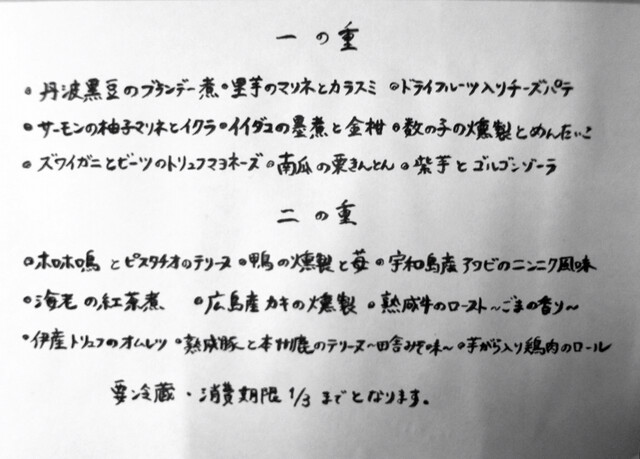 一の重
・丹波黒豆のブランデー煮 ・里芋のマリネとカラスミ ・ドライフルーツ入りチーズパテ
・サーモンの柚子マリネとイクラ ・イイダコの墨煮と金柑 ・数の子の燻製とめんたいこ
・ズワイガニとビーツのトリュフマヨネーズ ・南瓜の栗きんとん ・紫芋とゴルゴンゾーラ
二の重
・ホロホロ鳴とピスタチオのテリーヌ ・鴨の燻製と苺 ・宇和島産アワビのニンニク風味
・海老の紅茶煮 ・広島産カキの燻製 ・熟成牛のロースト～ごまの香り～
・伊産トリュフのオムレツ ・熟成豚と本州鹿のテリーヌ～田舎みそ味～ ・芋がら入り鶏肉のロール
要冷蔵・消費期限1/3までとなります。